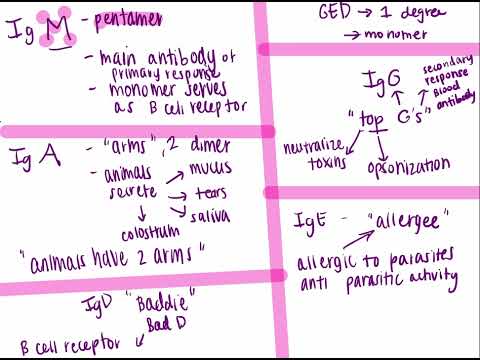 IgM - pentamer
- main antibody of
primary response
- monomer serves
as B cell receptor
IgA - "arms", 2 dimer
- animals
secrete
mucus
tears
saliva
colostrum
"animals have 2 arms"
IgD "Baddie"
Bad D
B cell receptor
GED → 1 degree
→ monomer
IgG
secondary
response
Blood
antibody
"top G's"
neutralize
toxins
opsonization
IgE - "allergee"
allergic to parasites
anti parasitic activity